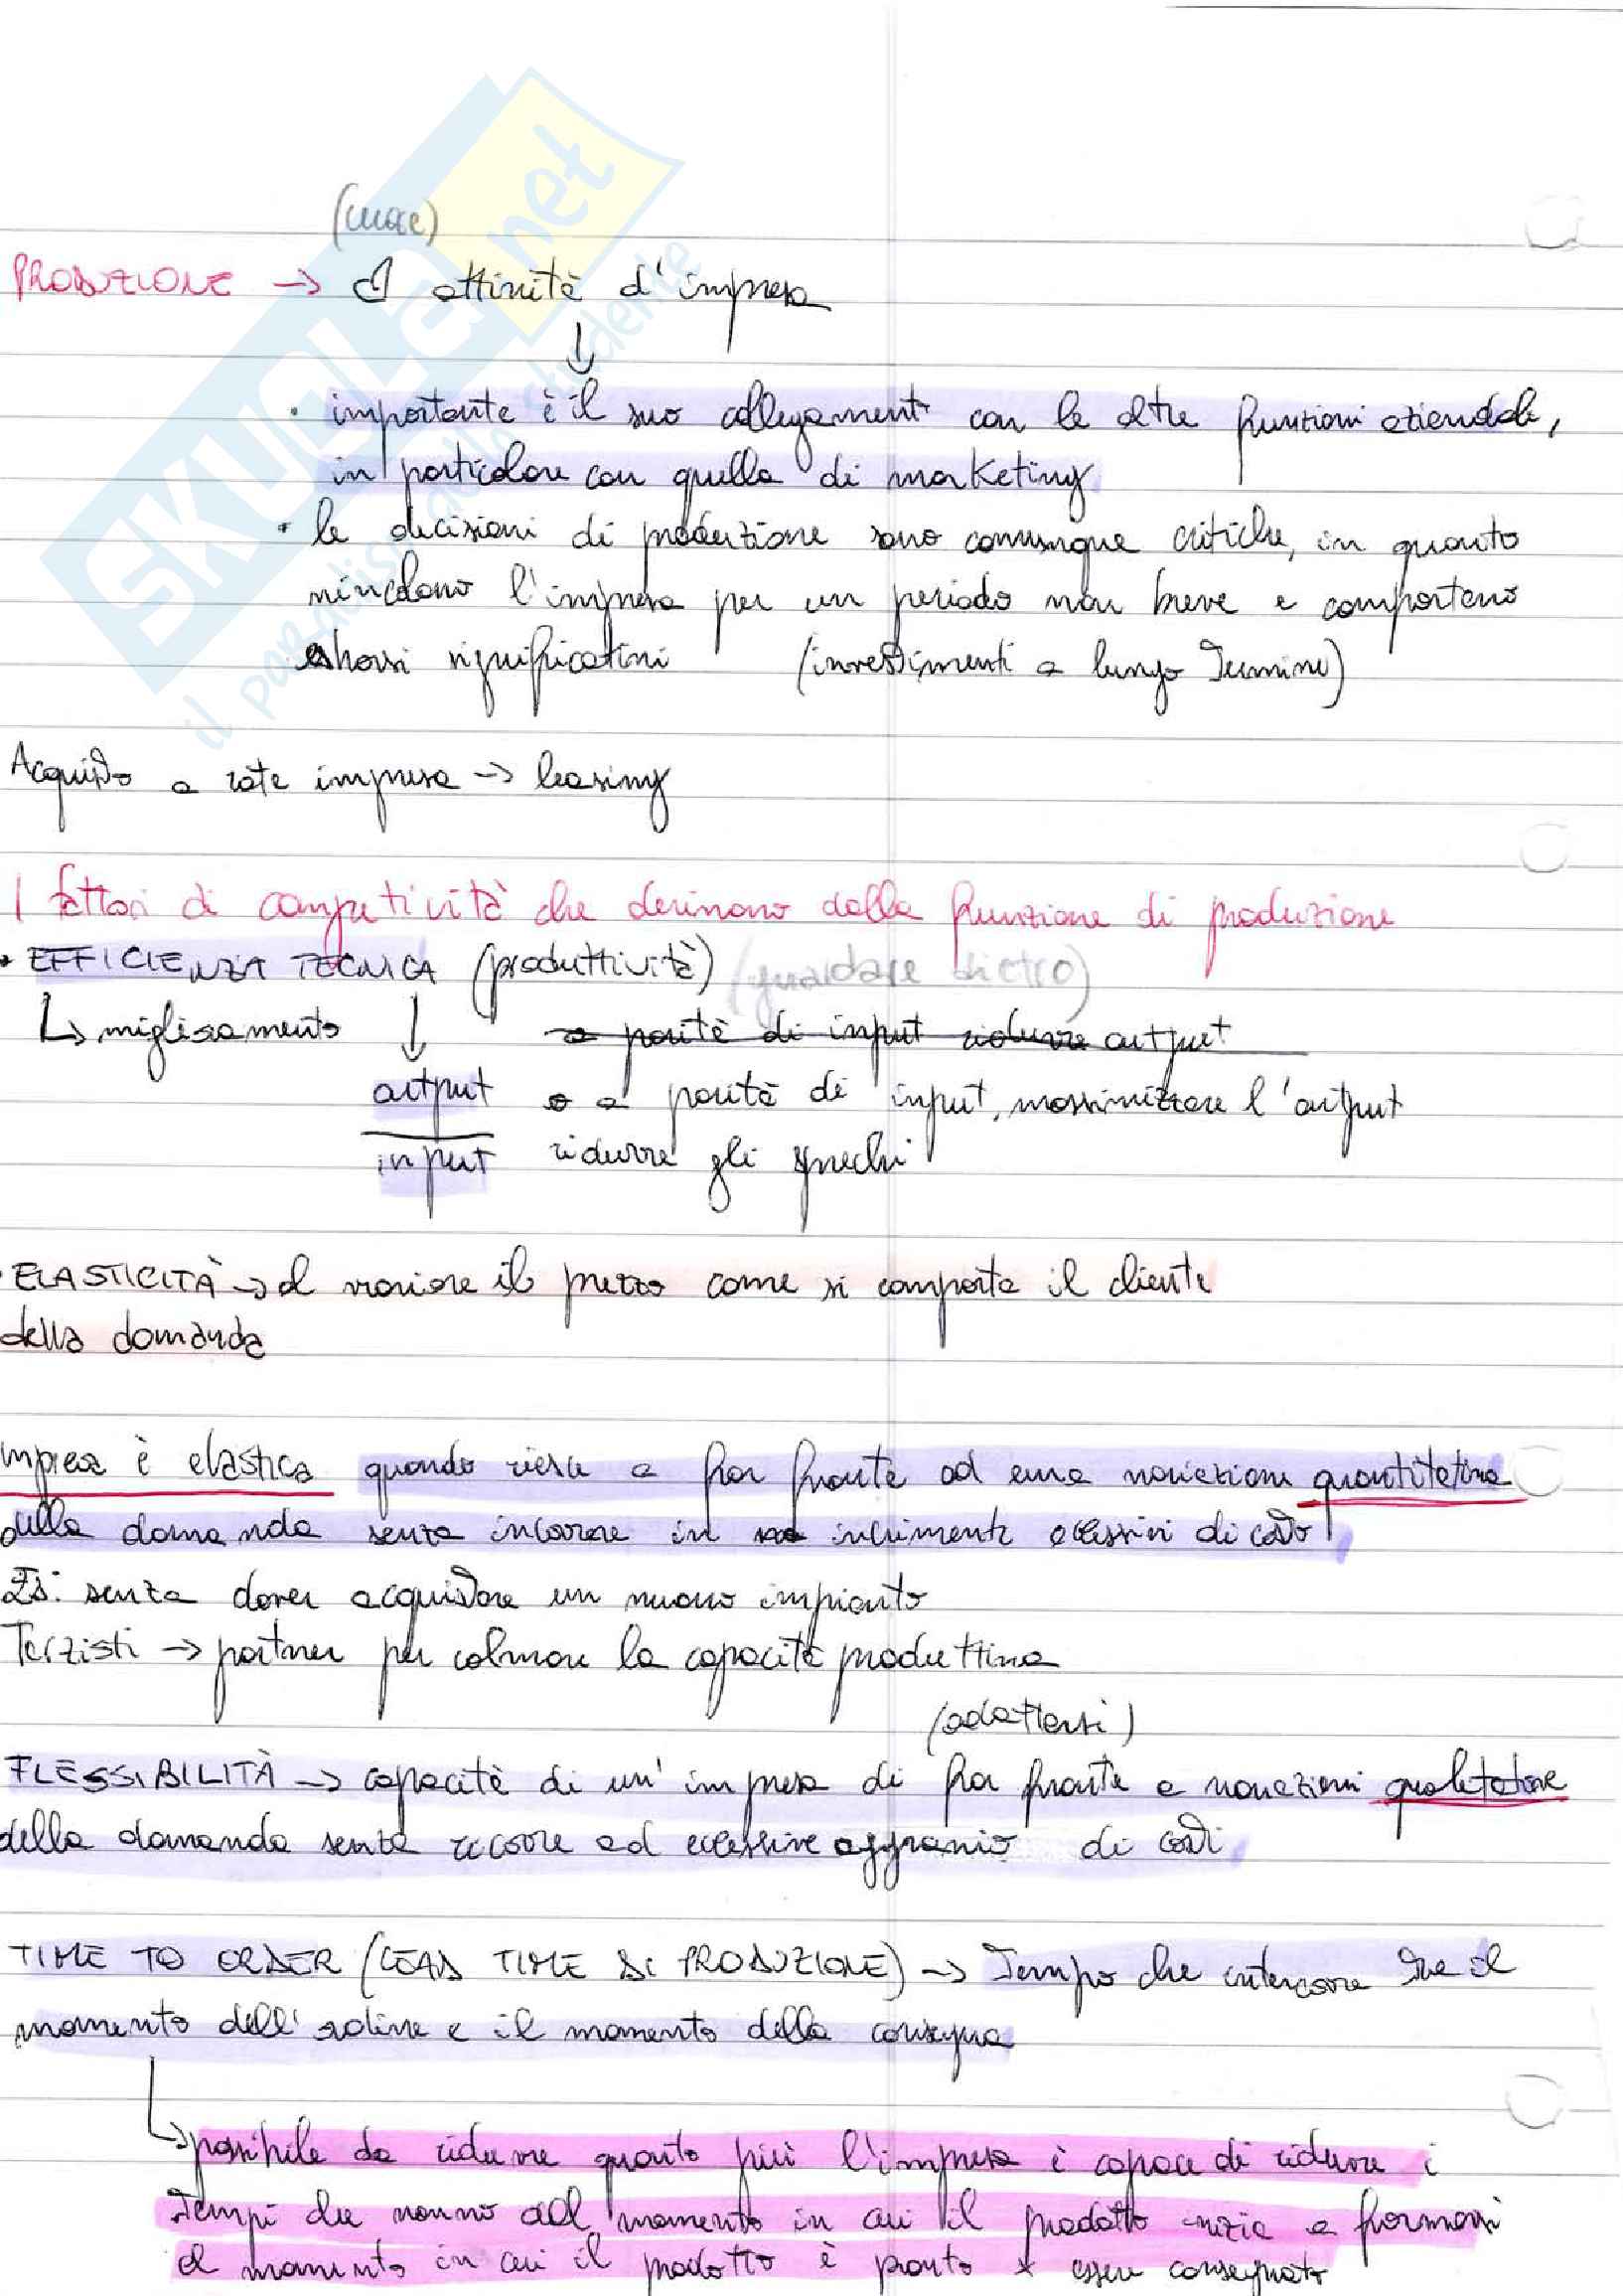 SKUOLA.net
il paradiso dello studente
(cuore)
PRODUZIONE → attività d'impresa
• importante è il suo collegamento con le altre funzioni aziendali,
in particolare con quella di marketing
• le decisioni di produzione sono comunque critiche, in quanto
vincolano l'impresa per un periodo non breve e comportano
esborsi significativi (investimenti a lungo termine)
Acquisto a rate impresa → leasing
I fattori di competitività che derivano dalla funzione di produzione
• EFFICIENZA TECNICA (produttività) (guardare dietro)
↳ miglioramento ↓ a parità di input ridurre output
output a parità di input, massimizzare l'output
input ridurre gli sprechi
• ELASTICITÀ → al variare il prezzo come si comporta il cliente
della domanda
impresa è elastica quando riesce a far fronte ad una variazione quantitativa
della domanda senza incorrere in incrementi eccessivi di costo
Es: senza dover acquistare un nuovo impianto
Terzisti → partner per colmare la capacità produttiva
(adattarsi)
FLESSIBILITÀ → capacità di un'impresa di far fronte a variazioni qualitative
della domanda senza ricorre ad eccessive aggravio di costi
TIME TO ORDER (LEAD TIME DI PRODUZIONE) → Tempo che intercorre tra il
momento dell'ordine e il momento della consegna
↳ possibile da ridurre quanto più l'impresa è capace di ridurre i
tempi che vanno dal momento in cui il prodotto inizia a formarsi
al momento in cui il prodotto è pronto x essere consegnato